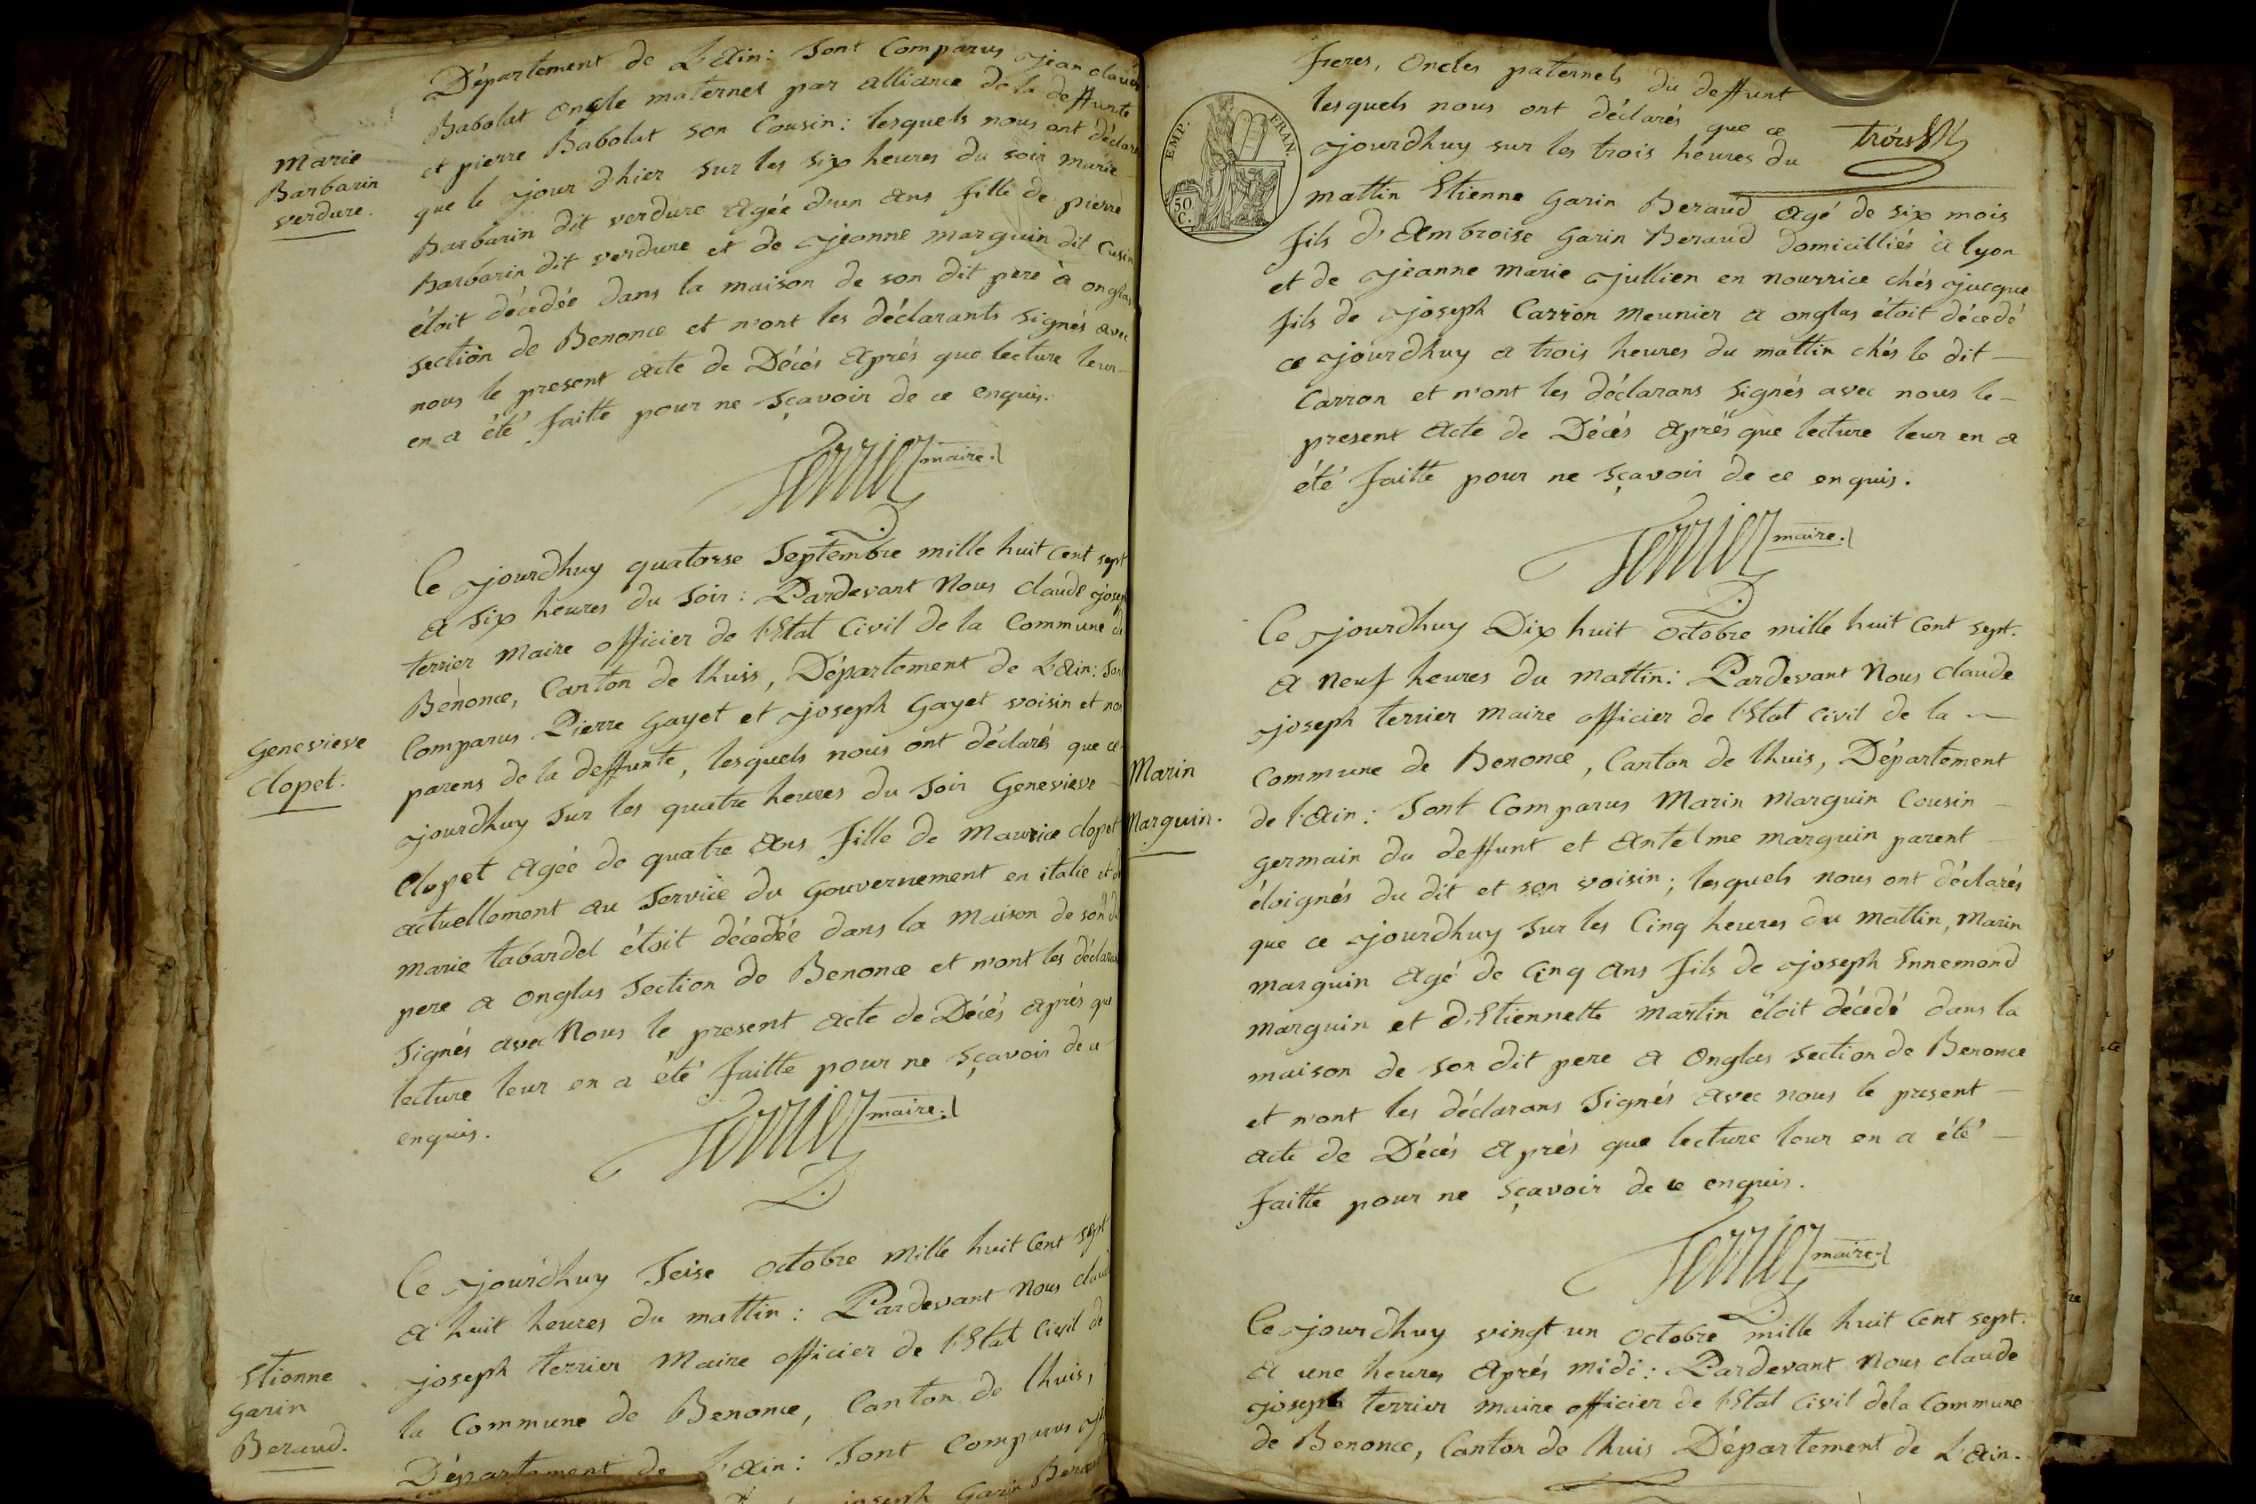 Département de L'Ain: Sont Comparus jean claude
Babolat oncle maternel par alliance de la deffunte
et pierre Babolat son Cousin: lesquels nous ont déclaré
Marie
Barbarin
verdure.
que le jour d'hier sur les six heures du soir marie
Barbarin dit verdure agée d'un ans fille de pierre
Barbarin dit verdure et de jeanne marguin dit Cusin
étoit décédée dans la maison de son dit pere à onglas
section de Benonce et n'ont les déclarants signés avec
nous le present acte de Décés aprés que lecture leur
en a été faitte pour ne sçavoir de ce enquis.
Terrier maire.
Ce jourdhuy quatorse Septembre mille huit Cent sept
a six heures du soir: Pardevant Nous claude joseph
terrier maire officier de l'Etat Civil de la Commune de
Bénonce, Canton de lhuis, Département de L'Ain: Sont
Comparus Pierre gayet et joseph gayet voisin et non
Genevieve
Clopet.
parens de la deffunte, lesquels nous ont déclarés que ce
jourdhuy sur les quatre heures du soir Genevieve
Clopet agée de quatre ans fille de maurice clopet
actuellement au service du gouvernement en italie et de
marie tabardel étoit décédée dans la maison de son dit
pere a onglas section de Benonce et n'ont les déclarans
signés avec Nous le present acte de Décés aprés que
lecture leur en a été faitte pour ne sçavoir de ce
enquis.
Terrier maire.
Ce jourdhuy Seise octobre mille huit Cent sept
a huit heures du mattin: Pardevant Nous claude
joseph terrier maire officier de l'Etat Civil de
Etienne
garin
Beraud.
la Commune de Benonce, Canton de lhuis,
Département de L'Ain: Sont Comparus
joseph Garin Beraud
freres, oncles paternels du deffunt
lesquels nous ont déclarés que ce
jourdhuy sur les trois heures du
EMP: FRAN.
50.
C.
mattin Etienne garin Beraud agé de six mois
fils d'Ambroise garin Beraud domicilliés à lyon
et de jeanne marie jullien en nourrice chés jacque
fils de joseph Carron meunier a onglas étoit décédé
ce jourdhuy a trois heures du mattin chés le dit
Carron et n'ont les déclarans signés avec nous le
present acte de Décés aprés que lecture leur en a
été faitte pour ne sçavoir de ce enquis.
Terrier maire.
Ce jourdhuy Dix huit octobre mille huit Cent sept.
a neuf heures du mattin: Pardevant Nous claude
joseph terrier maire officier de l'Etat Civil de la
Marin
Marguin.
Commune de Benonce, Canton de lhuis, Département
de l'Ain: Sont Comparus Marin Marguin Cousin
germain du deffunt et antelme marguin parent
éloignés du dit et son voisin; lesquels nous ont déclarés
que ce jourdhuy sur les Cinq heures du mattin, Marin
marguin agé de Cinq ans fils de joseph Ennemond
marguin et d'Etiennette martin étoit décédé dans la
maison de son dit pere a onglas section de Benonce
et n'ont les déclarans signés avec nous le present
acte de Décés aprés que lecture leur en a été
faitte pour ne sçavoir de ce enquis.
Terrier maire.
Ce jourdhuy vingt un octobre mille huit Cent sept.
a une heures aprés midi: Pardevant Nous claude
joseph terrier maire officier de l'Etat Civil de la Commune
de Benonce, Canton de lhuis Département de L'Ain.